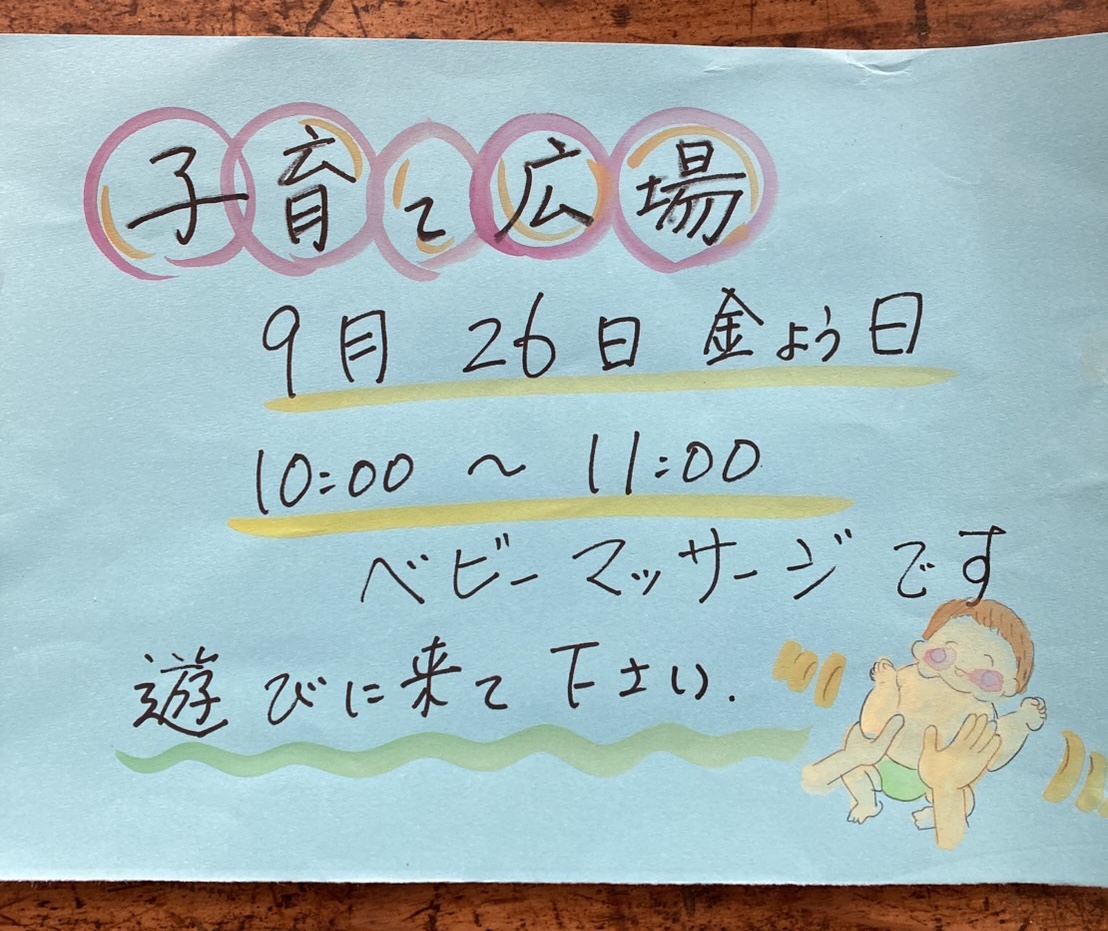 子育て広場
9月 26日 金よう日
10:00 ～ 11:00
ベビーマッサージです
遊びに来て下さい.